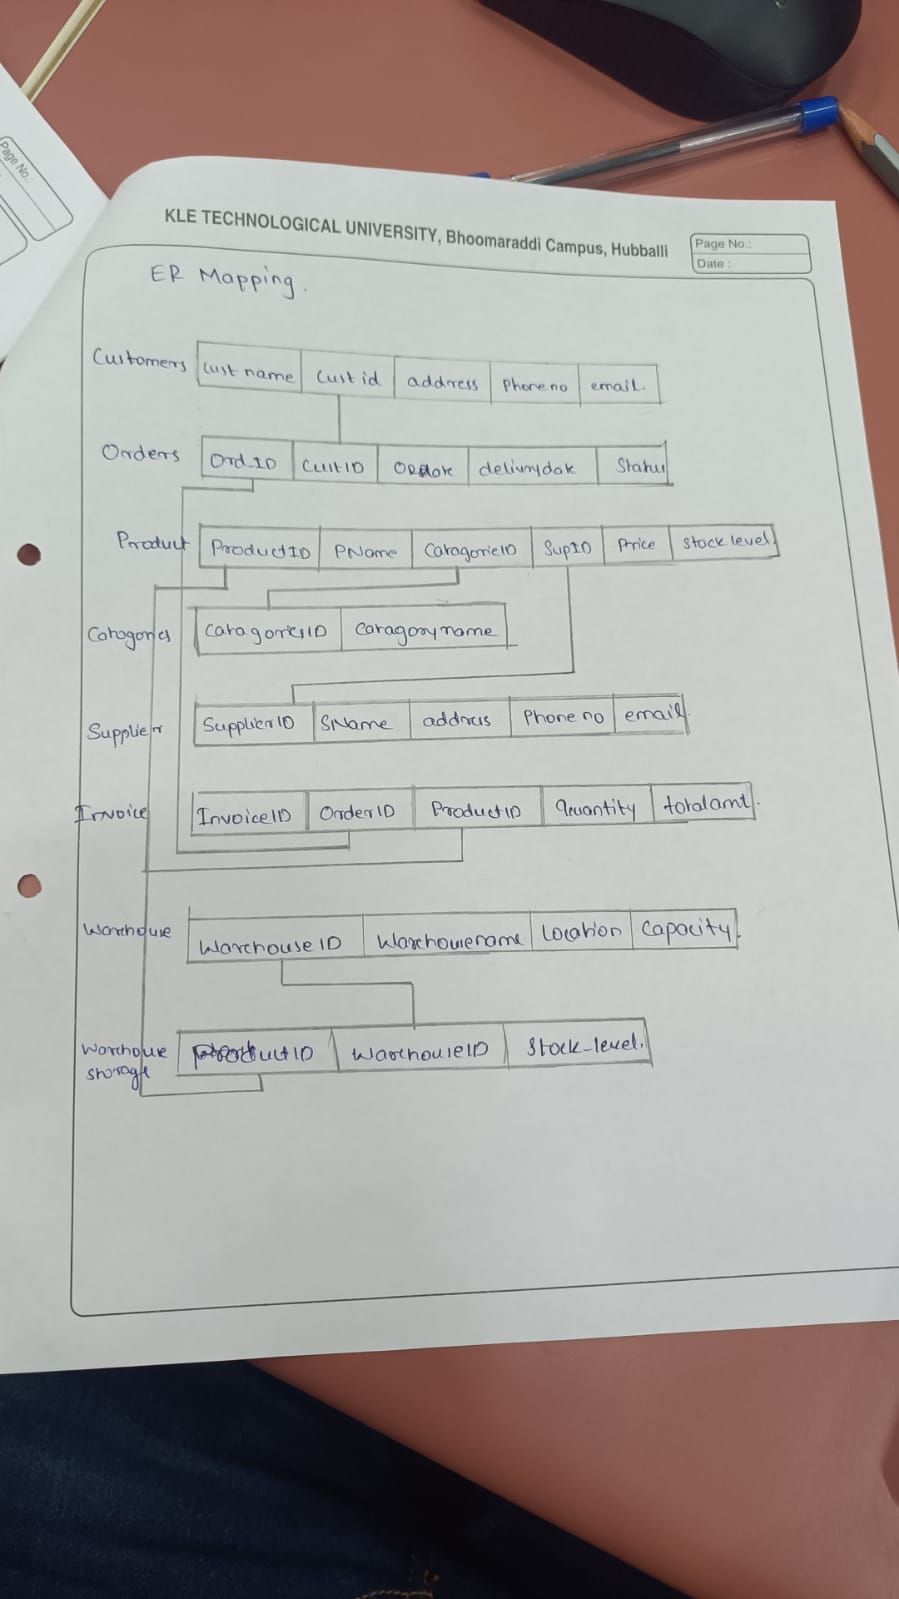 Page No.:
KLE TECHNOLOGICAL UNIVERSITY, Bhoomaraddi Campus, Hubballi
Page No.:
Date :
ER Mapping.
Customers Cust name Cust id address Phone no email.
Orders Ord_ID CustID delivrydate Status
Product ProductID PName CatagorieID SupID Price Stock level.
Catogories CatagoriesID Catagory name
Supplier SupplierID SName address Phone no email.
Invoice InvoiceID OrderID ProductID Quantity totalamt.
Warehouse Warehouse ID Warehousename Location Capacity.
Warehouse ProductID WarehouseID Stock_level.
storage